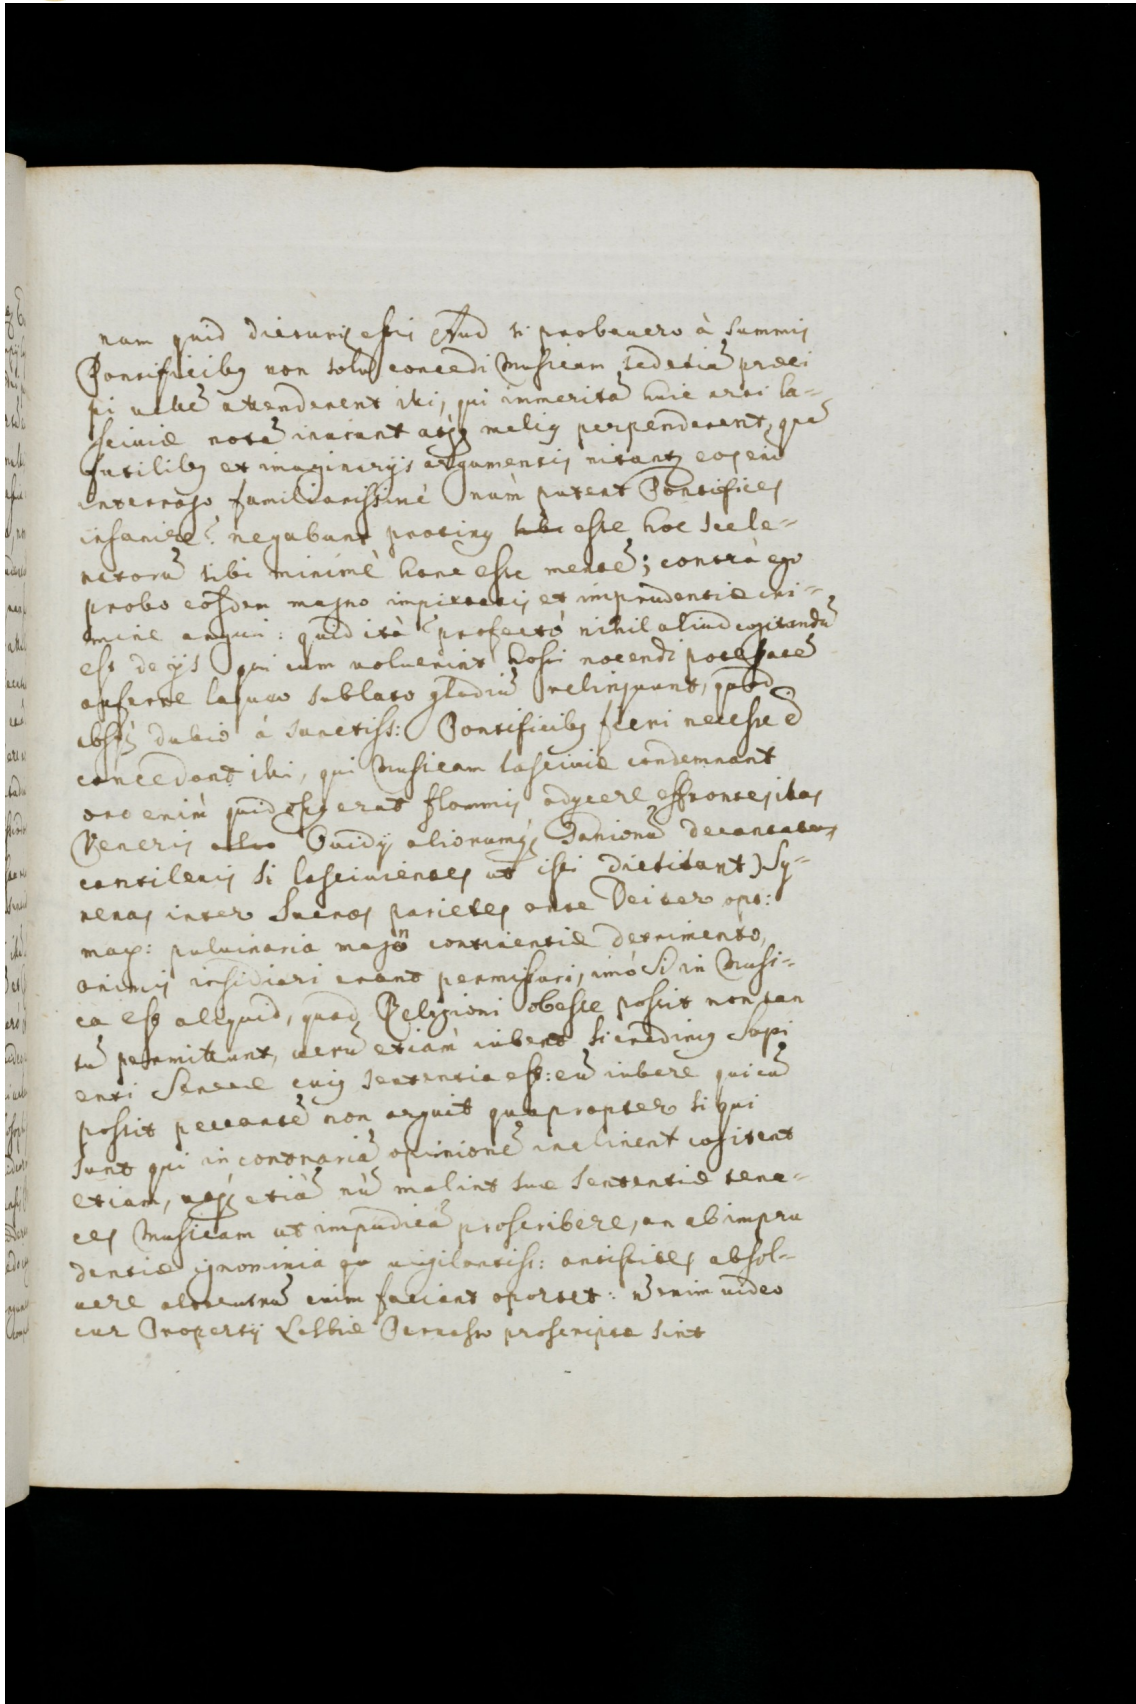 nam quid dicturi estis Aud si probauero à summis
Pontificibꝰ non solũ concedi Musicam sed etiã præci
pi utinã attenderent isti, qui immeritã huic arti la-
sciuiæ notã inurunt atqꝫ meliꝰ perpenderent, quã
futilibꝰ et imaginarijs argumentis nitantꝰ eos enĩ
interrogo familiarissimè nùm putent Pontifices
insanire? negabunt protinꝰ esse hoc scele-
ratorũ sibi minimè hanc esse mentẽ; contrà ego
probo eosdem magno impietatis et imprudentiæ cri-
mine argui: quid ità? profectò nihil aliud cogitandũ
est de ijs qui cum uoluerint hosti nocendi potestatẽ
auferre laqueo sublato gladiũ relinquunt, quod
absqꝫ dubio à sanctiss: Pontificibꝰ fieri necesse ẽ
concedant isti, qui Musicam lasciuiæ condemnant
oro enim quid opꝰ erat flammis adijcere effrontes istas
Veneris Ouidij aliorumqꝫ decantatas
cantilenis si lasciuientes ut isti dictitant) Sy-
renas inter Sacros parietes ante Dei ter opt:
max: puluinaria mag continentiæ detrimento,
animis insidiari erant permissuri, imò si in Musi-
ca est aliquid, quod Religioni obesse possit non tan
tũ permittunt, uerũ etiàm iubent si credimꝰ Sapi
enti Senecæ cuiꝰ sententia est: eũ iubere qui cũ
possit peccantẽ non arguit quapropter si qui
sunt qui in contrariã opinionẽ inclinent cogitent
etiam, atqꝫ etiã nũ malint suæ sententiæ tena-
ces Musicam ut impudicã proscribere, an ab impru
dentiæ ignominia uigilantiss: antistites absol-
uere alterutrũ enim faciant oportet: nõ enim uideo
cur Propertij Lesbiæ Parnasso proscriptæ sint